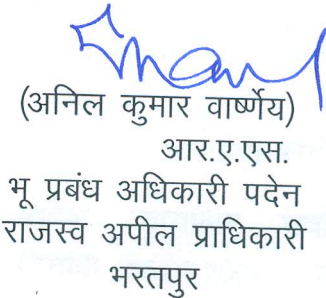 (अनिल कुमार वार्ष्णेय)
आर.ए.एस.
भू प्रबंध अधिकारी पदेन
राजस्व अपील प्राधिकारी
भरतपुर